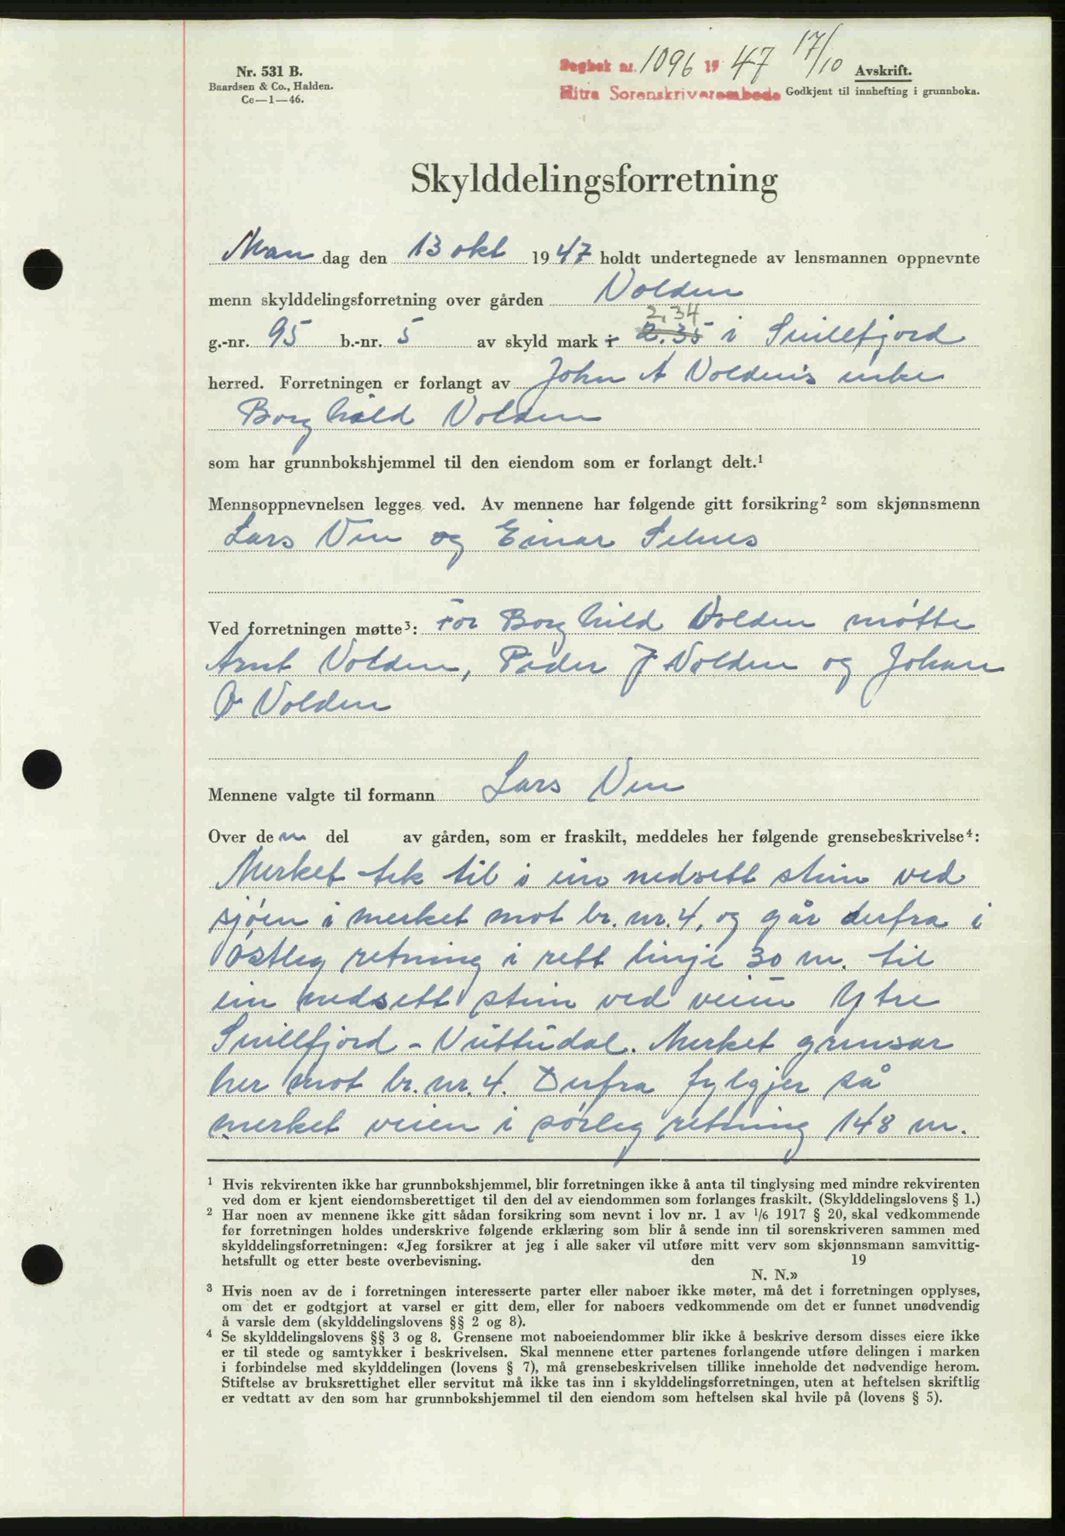 Nr. 531 B.
Baardsen & Co., Halden.
Ce—1—46.
Dagbok nr. 1096 19 47 17/10
Hitra Sorenskriverembede
Avskrift.
Godkjent til innhefting i grunnboka.
Skylddelingsforretning
Man dag den 13 okt 19 47 holdt undertegnede av lensmannen oppnevnte
menn skylddelingsforretning over gården Volden
2,34
g.-nr. 95 b.-nr. 5 av skyld mark 2.35 i Snillfjord
herred. Forretningen er forlangt av John A Voldens enke
Borghild Volden
som har grunnbokshjemmel til den eiendom som er forlangt delt.¹
Mennsoppnevnelsen legges ved. Av mennene har følgende gitt forsikring² som skjønnsmenn
Lars Ven og Einar Selnes
Ved forretningen møtte³: For Borghild Volden møtte
Arnt Volden, Peder J Volden og Johan
O Volden
Mennene valgte til formann Lars Ven
Over den del av gården, som er fraskilt, meddeles her følgende grensebeskrivelse⁴:
Merket tek til i ein nedsett stein ved
sjøen i merket mot br. nr. 4, og går derfra i
østleg retning i rett linje 30 m. til
ein nedsett stein ved veien Ytre
Snillfjord - Vuttudal. Merket grensar
her mot br. nr. 4. Derfra fylgjer så
merket veien i sørleg retning 148 m.
¹ Hvis rekvirenten ikke har grunnbokshjemmel, blir forretningen ikke å anta til tinglysing med mindre rekvirenten
ved dom er kjent eiendomsberettiget til den del av eiendommen som forlanges fraskilt. (Skylddelingslovens § 1.)
² Har noen av mennene ikke gitt sådan forsikring som nevnt i lov nr. 1 av 1/6 1917 § 20, skal vedkommende
før forretningen holdes underskrive følgende erklæring som blir å sende inn til sorenskriveren sammen med
skylddelingsforretningen: «Jeg forsikrer at jeg i alle saker vil utføre mitt verv som skjønnsmann samvittig-
hetsfullt og etter beste overbevisning. den 19
N. N.»
³ Hvis noen av de i forretningen interesserte parter eller naboer ikke møter, må det i forretningen opplyses,
om det er godtgjort at varsel er gitt dem, eller for naboers vedkommende om det er funnet unødvendig
å varsle dem (skylddelingslovens §§ 2 og 8).
⁴ Se skylddelingslovens §§ 3 og 8. Grensene mot naboeiendommer blir ikke å beskrive dersom disses eiere ikke
er til stede og samtykker i beskrivelsen. Skal mennene etter partenes forlangende utføre delingen i marken
i forbindelse med skylddelingen (lovens § 7), må grensebeskrivelsen tillike inneholde det nødvendige herom.
Stiftelse av bruksrettighet eller servitut må ikke tas inn i skylddelingsforretningen, uten at heftelsen skriftlig
er vedtatt av den som har grunnbokshjemmel til den eiendom som heftelsen skal hvile på (lovens § 5).